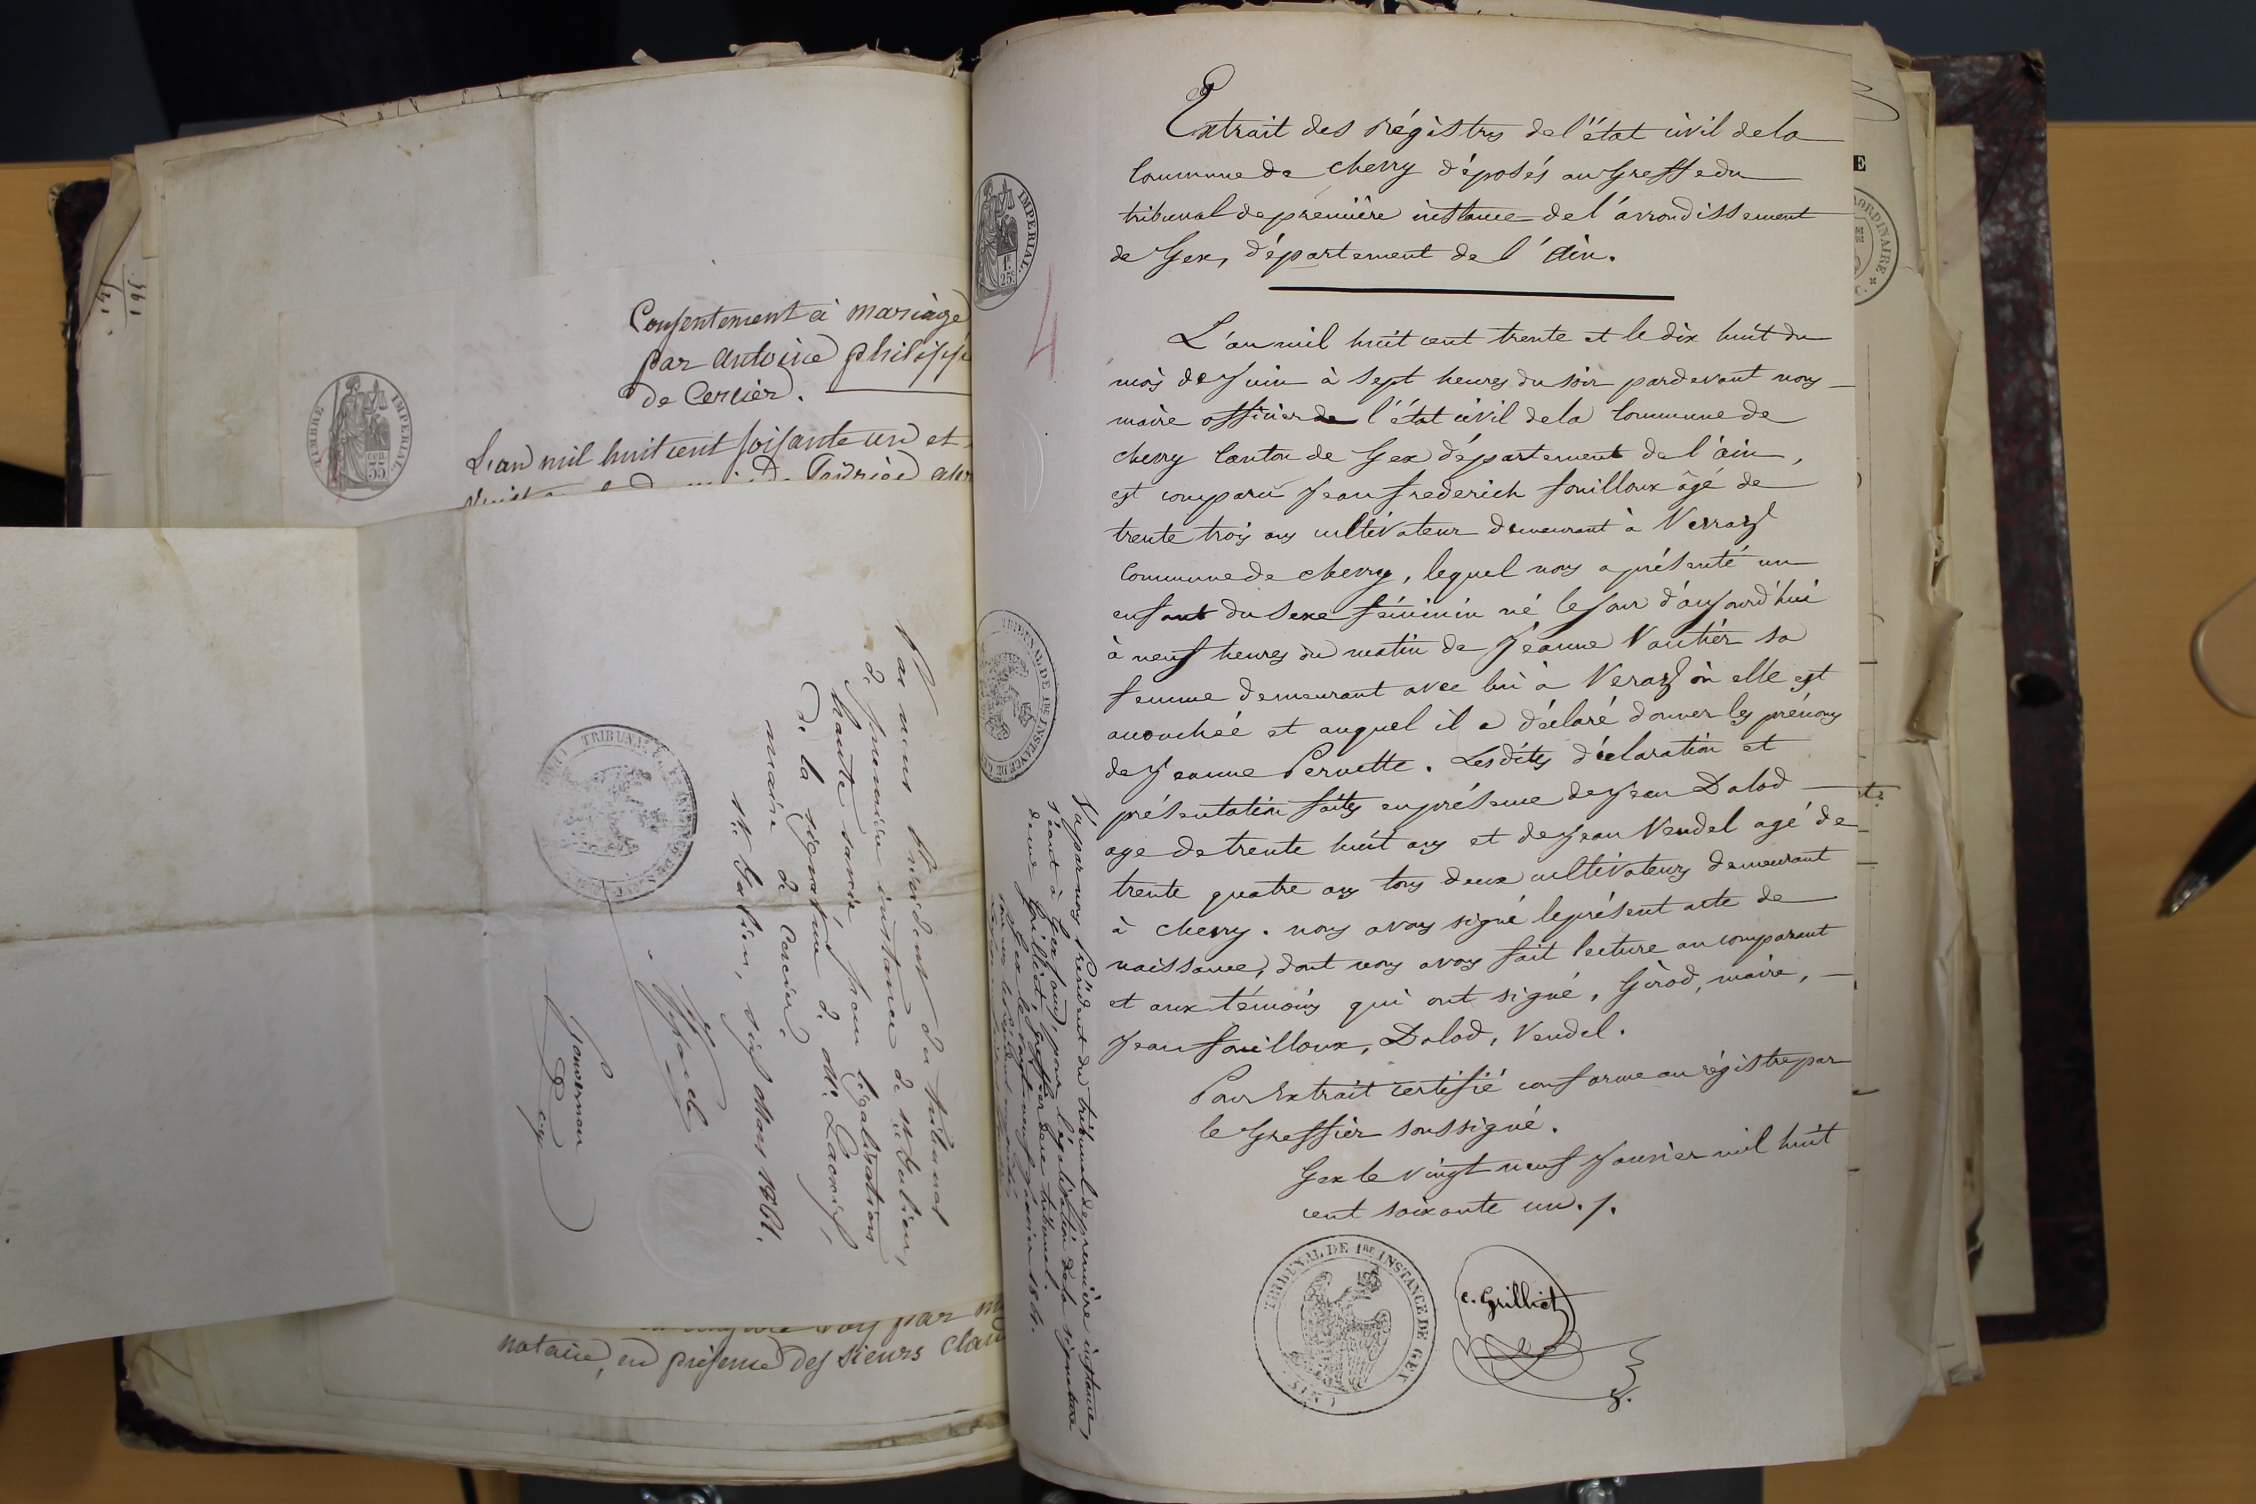 Consentement à mariage
par antoine philippe
de Cercier.
L'an mil huit cent soixante un et
TIMBRE IMPERIAL
35
Vu par nous Président du tribunal
de première instance de St Julien,
haute savoie, pour légalisation
de la signature de Me
maire de Cercier.
St Julien, six Mars 1861.
notaire, en présence des sieurs
IMPERIAL.
1f
25c
4
Extrait des régistres de l'état civil de la
Commune de Chevry déposés au Greffe du
tribunal de première instance de l'arrondissement
de Gex, département de l'Ain.
L'an mil huit cent trente et le dix huit du
mois de Juin à sept heures du soir pardevant nous
maire officier de l'état civil de la Commune de
chevry Canton de Gex département de l'ain,
est comparu Jean frederich fouilloux âgé de
trente trois ans cultivateur demeurant à Verraz
Commune de chevry, lequel nous a présenté un
enfant du sexe féminin né le jour d'aujourd'hui
à neuf heures du matin de Jeanne Vautier sa
femme demeurant avec lui à Veraz où elle est
accouchée et auquel il a déclaré donner les prénoms
de Jeanne Pernette. Les dites déclaration et
présentation faites en présence de Jean Dalod
age de trente huit ans et de Jean Vendel agé de
trente quatre ans tous deux cultivateurs demeurant
à chevry. nous avons signé le présent acte de
naissance, dont nous avons fait lecture au comparant
et aux témoins qui ont signé, Girod, maire,
Jean fouilloux, Dalod, Vendel.
Pour Extrait certifié conforme au régistre par
le Greffier soussigné.
Gex le vingt neuf Janvier mil huit
cent soixante un.
TRIBUNAL DE 1RE INSTANCE DE GEX
C. Grilliet
Vu par nous Président du tribunal de première instance
séant à Gex (ain), pour légalisation de la signature
de Me Grilliet, greffier de ce tribunal.
Gex le vingt neuf Janvier 1861.
TRIBUNAL DE 1RE INSTANCE DE